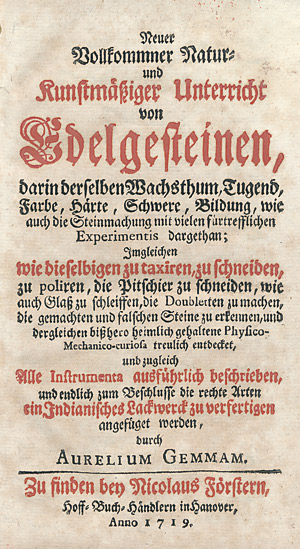 Neuer
Vollkommner Natur-
und
Kunstmäßiger Unterricht
von
Edelgesteinen,
darin derselben Wachsthum, Tugend,
Farbe, Härte, Schwere, Bildung, wie
auch die Steinmachung mit vielen fürtrefflichen
Experimentis dargethan;
Imgleichen
wie dieselbigen zu taxiren, zu schneiden,
zu poliren, die Pitschier zu schneiden, wie
auch Glaß zu schleiffen, die Doubletten zu machen,
die gemachten und falschen Steine zu erkennen, und
dergleichen bißhero heimlich gehaltene Physico-
Mechanico-curiosa treulich entdecket,
und zugleich
Alle Instrumenta ausführlich beschrieben,
und endlich zum Beschlusse die rechte Arten
ein Indianisches Lackwerck zu verfertigen
angefüget werden,
durch
AURELIUM GEMMAM.
Zu finden bey Nicolaus Förstern,
Hoff-Buch-Händlern in Hanover,
Anno 1719.